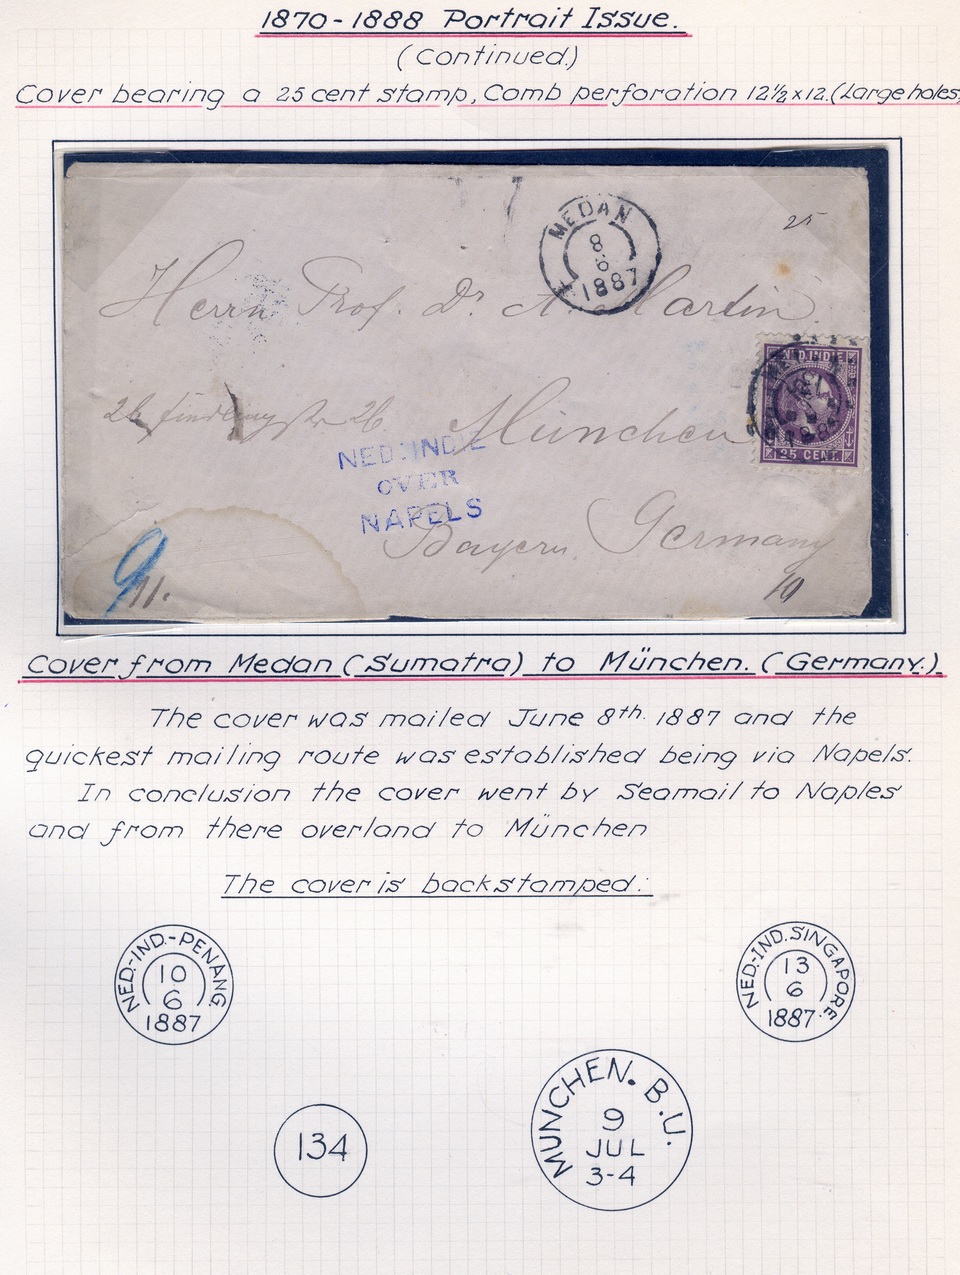 1870-1888 Portrait Issue.
(Continued.)
Cover bearing a 25 cent stamp, Comb perforation 12½ x 12. (Large holes)
MEDAN
8
6
1887
25
Herrn Prof. Dr. A. Martin.
NED. INDIE
25 CENT
26 26 München
NED: INDIE
OVER
NAPELS
Bayern. Germany
9
11.
10
Cover from Medan (Sumatra) to München. (Germany.)
The cover was mailed June 8th. 1887 and the
quickest mailing route was established being via Napels.
In conclusion the cover went by Seamail to Naples
and from there overland to München
The cover is backstamped:
NED.-IND.-PENANG
10
6
1887
NED.-IND. SINGAPORE.
13
6
1887.
134
MUNCHEN. B.U.
9
JUL
3-4